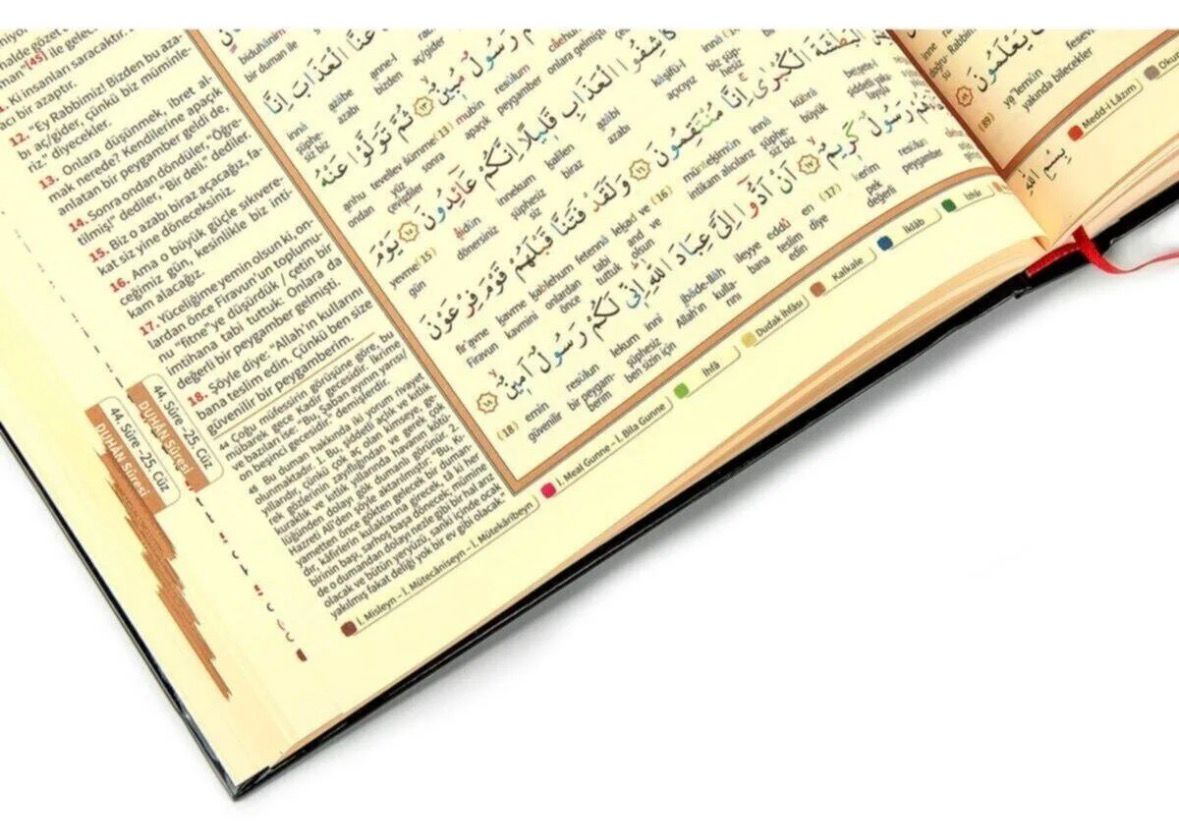 halde gözet
man"[45] ile gelece
Ki insanları saracaktır.
acı bir azaptır.
12. "Ey Rabbimiz! Bizden bu aza-
bı aç/gider, çünkü biz müminle-
riz" diyecekler.
13. Onlara düşünmek, ibret al-
mak nerede? Kendilerine apaçık
anlatan bir peygamber geldi de,
14. Sonra ondan döndüler, "Öğre-
tilmiş!" dediler, "Bir deli." dediler.
15. Biz o azabı biraz açacağız, fa-
kat siz yine döneceksiniz.
16. Ama o büyük güçle sıkıvere-
ceğimiz gün, kesinlikle biz inti-
kam alacağız.
17. Yüceliğime yemin olsun ki, on-
lardan önce Firavun'un toplumu-
nu "fitne"ye düşürdük / çetin bir
imtihana tabi tuttuk. Onlara da
değerli bir peygamber gelmişti.
18. Şöyle diye: "Allah'ın kullarını
bana teslim edin. Çünkü ben size
güvenilir bir peygamberim.
44 Çoğu müfessirin görüşüne göre, bu
mübarek gece Kadir gecesidir. İkrime
ve bazıları ise: "Bu, Şaban ayının yarısı/
on beşinci gecesidir." demişlerdir.
45 Bu duman hakkında iki yorum rivayet
olunmaktadır. 1. Bu, şiddetli açlık ve kıtlık
yıllarıdır, çünkü çok aç olan kimseye, ge-
rek gözlerinin zayıflığından ve gerek çok
kuraklık ve kıtlık yıllarında havanın kötü-
lüğünden dolayı gök dumanlı görünür. 2.
Hazreti Ali'den şöyle aktarılmıştır: "Bu, kı-
yametten önce gökten gelecek bir duman-
dır, kâfirlerin kulaklarına girecek, tâ ki her
birinin başı, sarhoş başa dönecek, mümine
de o dumandan dolayı nezle gibi bir hal arız
olacak ve bütün yeryüzü, sanki içinde ocak
yakılmış fakat deliği yok bir ev gibi olacak."
44. Sûre -25. Cüz
DUHÂN Sûresi
44. Sûre -25. Cüz
DUHÂN Sûresi
عَنَّا الْعَذَابَ اِنَّا
innâ azâbe anne-l
şüphe- azabı bizden aç/gider
siz biz
رَسُولٌ مُب۪ينٌۙ ﴿١٣﴾ ثُمَّ تَوَلَّوْا عَنْهُ
anhu tevellev sümme (13) mubîn resûlum
ondan yüz sonra apaçık peygamber
çevirdiler
كَاشِفُوا الْعَذَابِ قَل۪يلًا اِنَّكُمْ عَٓائِدُونَۘ ﴿١٥﴾ يَوْمَ
yevme (15) âidûn innekum kalîlen azâbi kâşifu-l
gün dönersiniz şüphesiz biraz azabı açıcıyız
siz
الْبَطْشَةَ الْكُبْرٰىۚ اِنَّا مُنْتَقِمُونَ ﴿١٦﴾ وَلَقَدْ فَتَنَّا قَبْلَهُمْ قَوْمَ فِرْعَوْنَ
fir'avne kavme kablehum fetennâ lekad ve (16) müntekimûn innâ kübrâ
Firavun kavmini onlardan tabi and ve intikam alıcılarız şüphe- büyük
önce tuttuk olsun siz biz
رَسُولٌ كَر۪يمٌۙ ﴿١٧﴾ اَنْ اَدُّٓوا اِلَيَّ عِبَادَ اللّٰهِۜ اِنّ۪ي لَكُمْ رَسُولٌ اَم۪ينٌۙ ﴿١٨﴾
(18) emîn resûlun lekum innî ibâde-llâh ileyye eddû en (17) kerîm resûlun
güvenilir bir peygam- ben sizin için şüphesiz Allah'ın kulla- bana teslim diye pek peygamber
berim rını edin değerli
يَعْلَمُونَ ﴿٨٩﴾
(89) ya'lemûn
yakında bilecekler
İ. Misleyn – İ. Mütecâniseyn – İ. Mütekâribeyn
İ. Meal Gunne – İ. Bila Gunne
İhfâ
Dudak İhfâsı
Kalkale
İklâb
İzhâr
Medd-i Lâzım